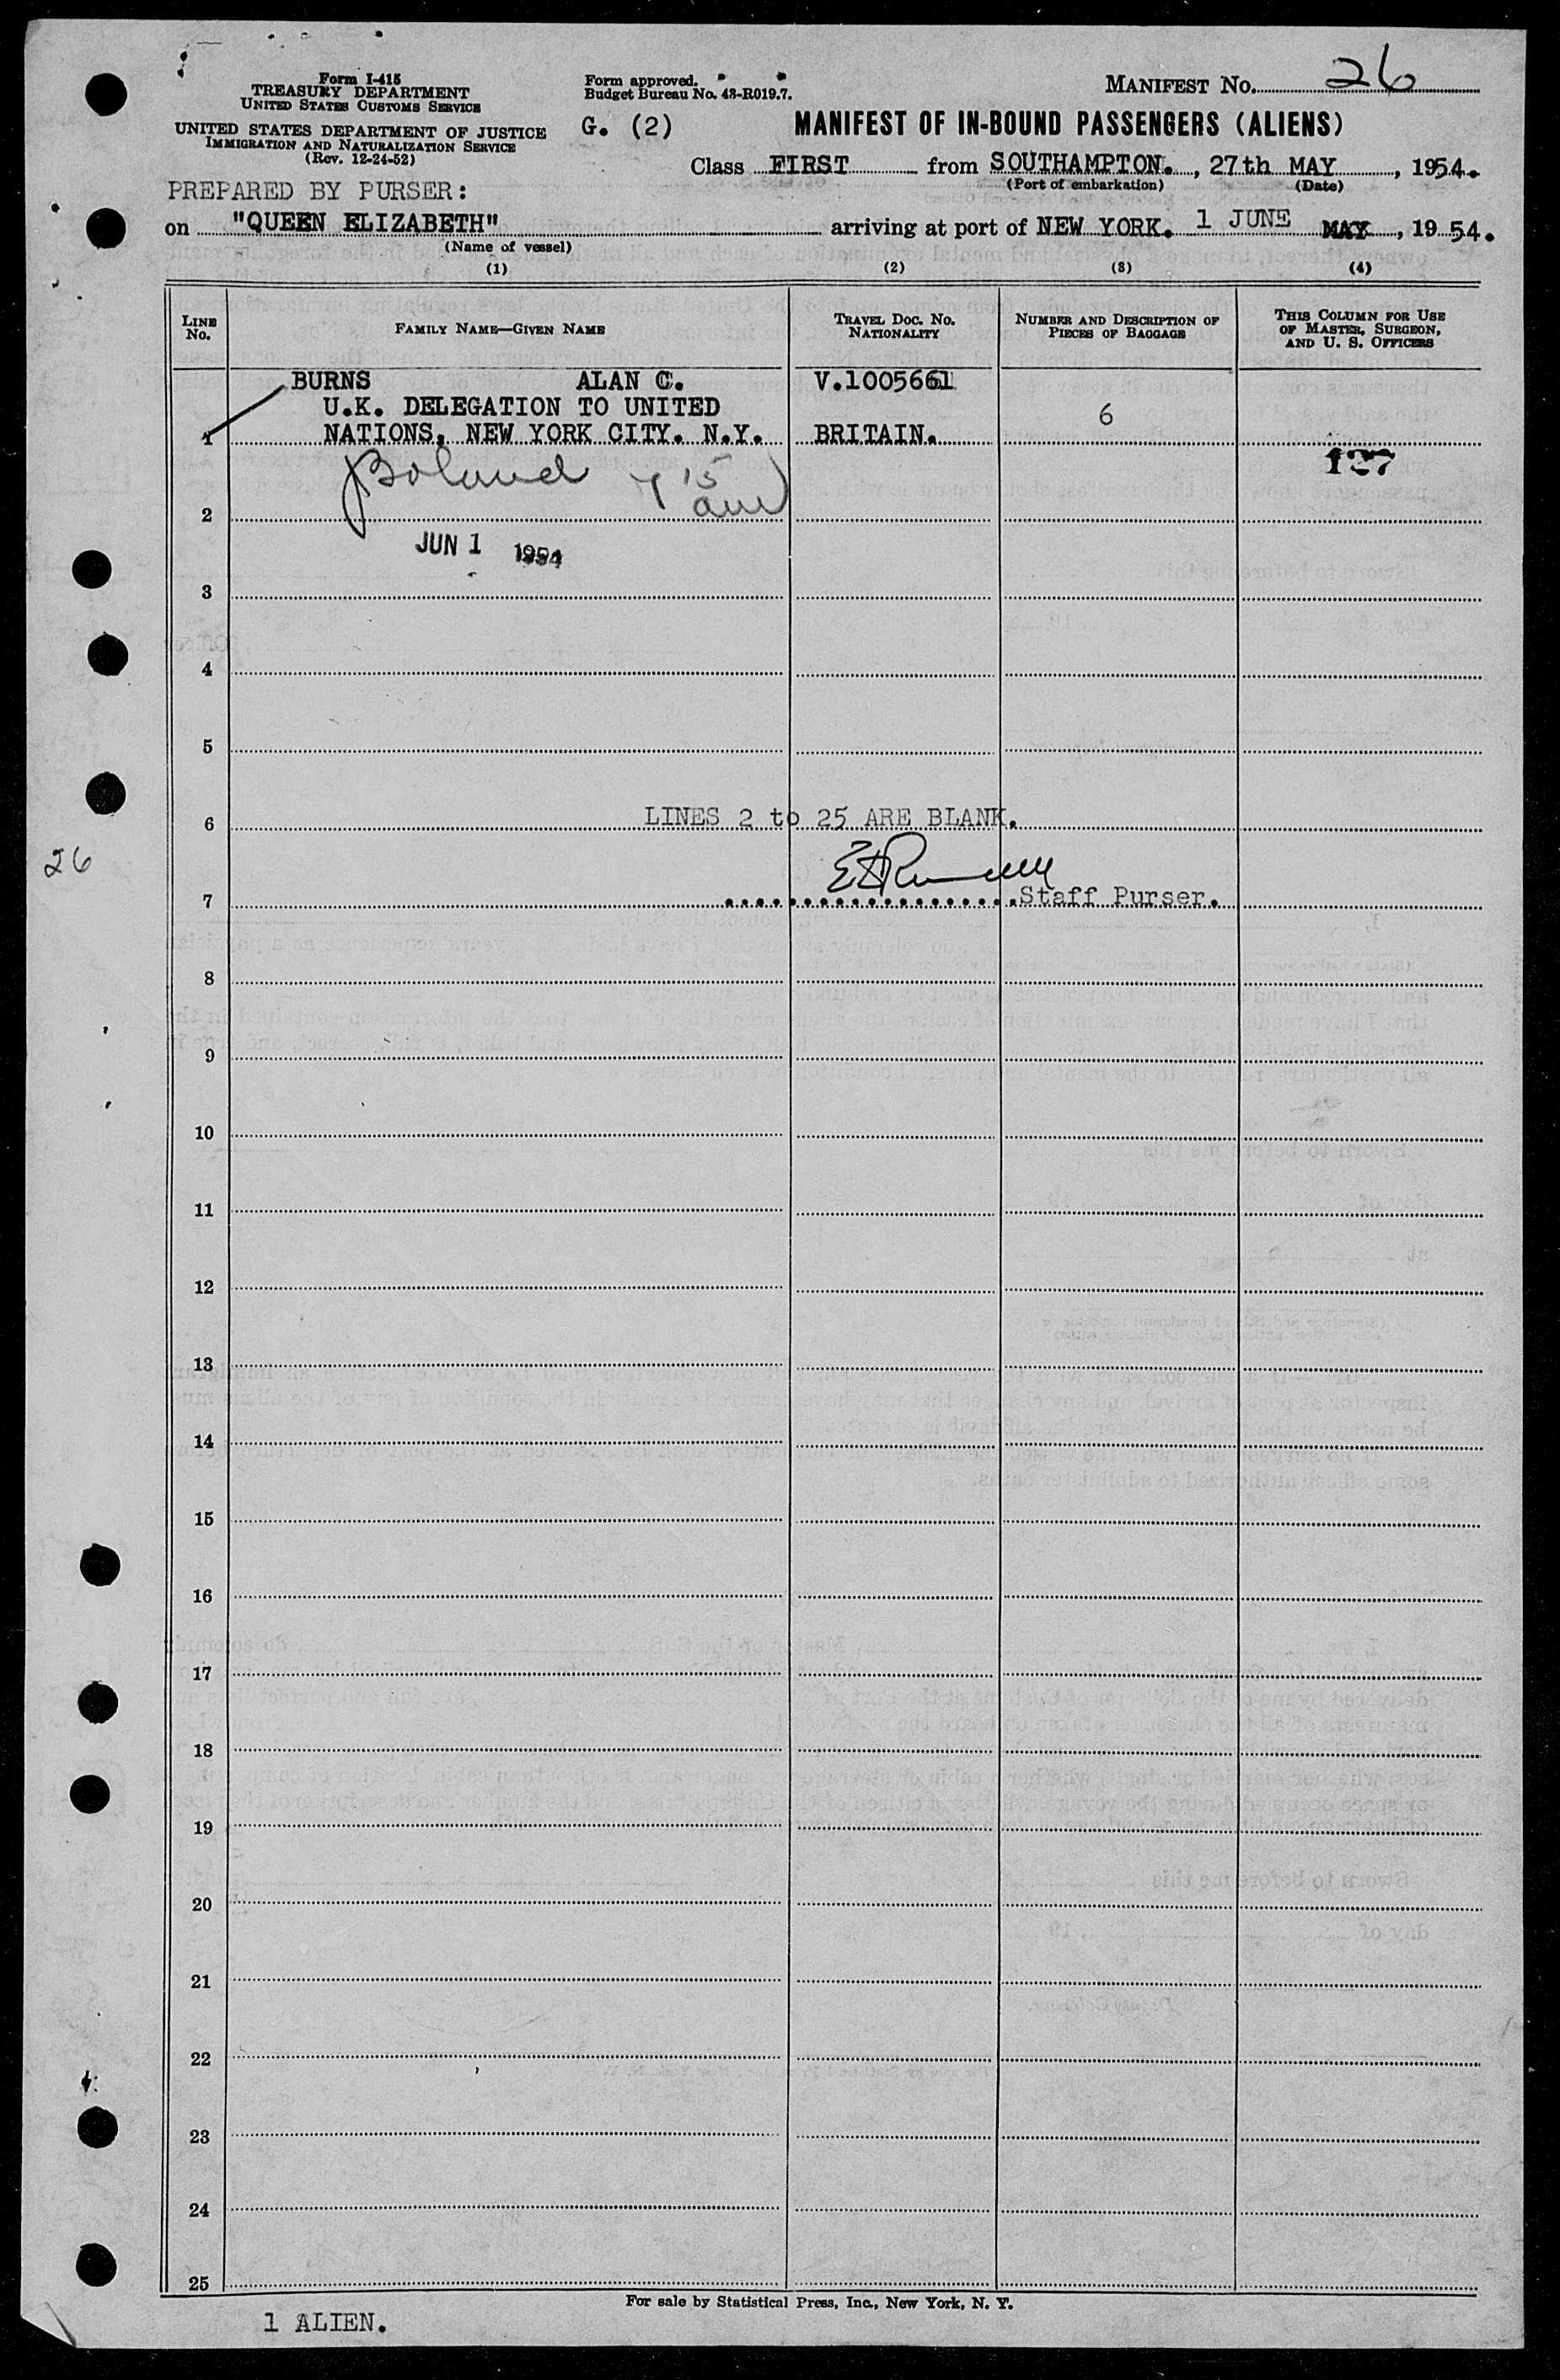 Form I-415
TREASURY DEPARTMENT
UNITED STATES CUSTOMS SERVICE
UNITED STATES DEPARTMENT OF JUSTICE
IMMIGRATION AND NATURALIZATION SERVICE
(Rev. 12-24-52)
Form approved.
Budget Bureau No. 43-R019.7.
G. (2)
MANIFEST NO. 26
MANIFEST OF IN-BOUND PASSENGERS (ALIENS)
Class FIRST from SOUTHAMPTON. , 27th MAY , 1954.
(Port of embarkation) (Date)
PREPARED BY PURSER:
on "QUEEN ELIZABETH" arriving at port of NEW YORK. 1 JUNE MAY, 19 54.
(Name of vessel)
(1) (2) (3) (4)
LINE No. FAMILY NAME—GIVEN NAME TRAVEL DOC. NO. NATIONALITY NUMBER AND DESCRIPTION OF PIECES OF BAGGAGE THIS COLUMN FOR USE OF MASTER, SURGEON, AND U. S. OFFICERS
BURNS ALAN C. V.1005661
U.K. DELEGATION TO UNITED 6
1 NATIONS, NEW YORK CITY. N.Y. BRITAIN.
127
Boland 7 15 am
2
JUN 1 1954
3
4
5
6 LINES 2 to 25 ARE BLANK.
26
7 Staff Purser.
8
9
10
11
12
13
14
15
16
17
18
19
20
21
22
23
24
25
For sale by Statistical Press, Inc., New York, N. Y.
1 ALIEN.